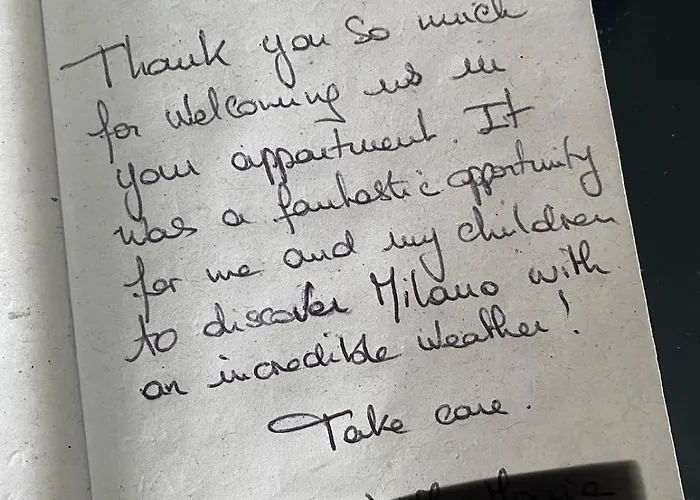 Thank you so much
for welcoming us in
your appartment. It
was a fantastic opportunity
for me and my children
to discover Milano with
an incredible weather!
Take care.